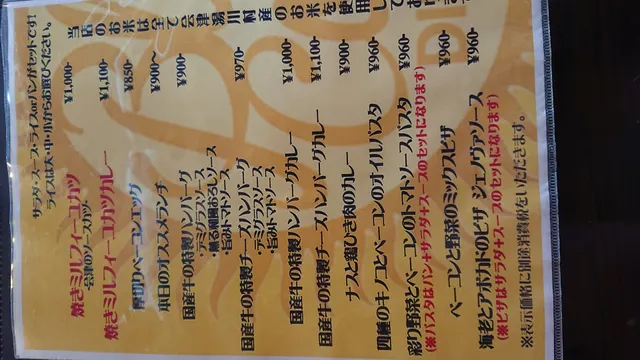 サラダ・スープ・ライスorパンがセットです!
ライスは大・中・小からお選びください。
当店のお米は全て会津湯川村産のお米を使用して
焼きミルフィーユカツ ¥1,000-
-会津のソースカツ-
焼きミルフィーユカツカレー ¥1,100-
厚切りベーコンエッグ ¥850-
本日のオススメランチ ¥900~
国産牛の特製ハンバーグ ¥900-
・デミグラスソース
・薫る和風おろしソース
・旨みトマトソース
国産牛の特製チーズハンバーグ ¥970-
・デミグラスソース
・旨みトマトソース
国産牛の特製ハンバーグカレー ¥1,000-
国産牛の特製チーズハンバーグカレー ¥1,100-
ナスと鶏ひき肉のカレー ¥900-
四種のキノコとベーコンのオイルパスタ ¥960-
彩り野菜とベーコンのトマトソースパスタ ¥960-
(※パスタはパン+サラダ+スープのセットになります)
ベーコンと野菜のミックスピザ ¥960-
海老とアボカドのピザ ジェノヴァソース ¥960-
(※ピザはサラダ+スープのセットになります)
※表示価格に別途消費税をいただきます。